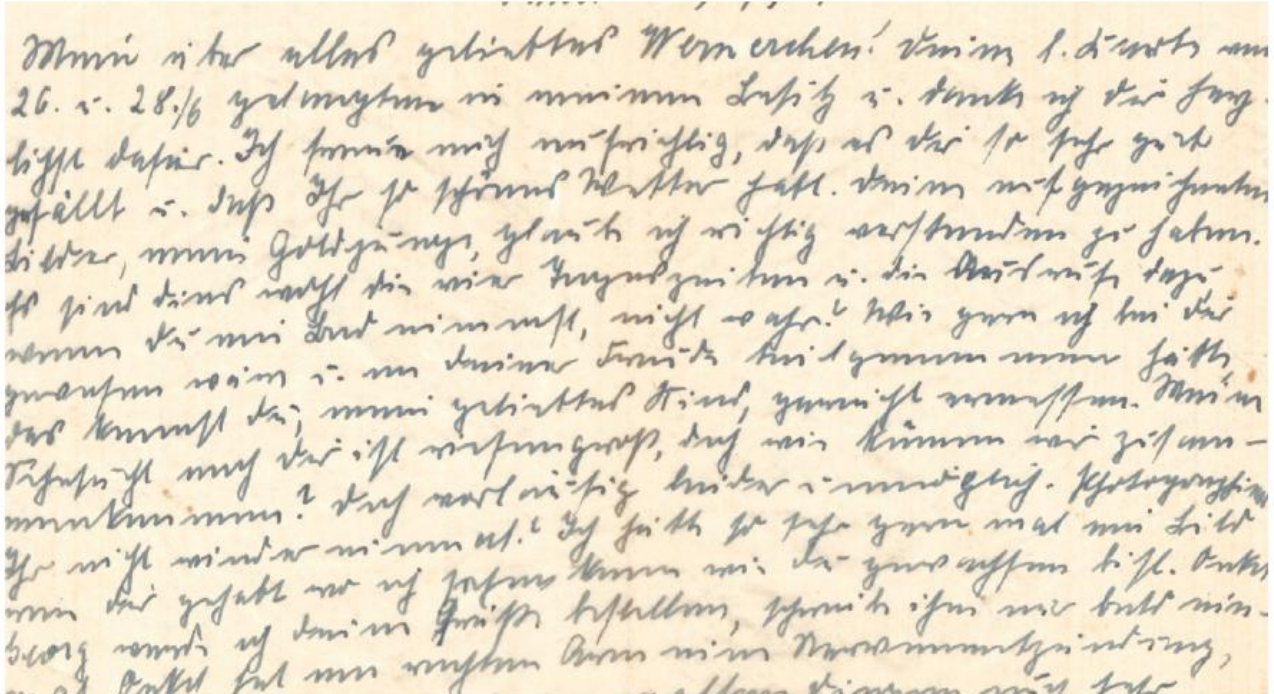 Mein über alles geliebtes Wernerchen! Deine l. Karte vom
26. u. 28./6 gelangten in meinen Besitz u. danke ich Dir herz-
lichst dafür. Ich freue mich aufrichtig, daß es Dir so sehr gut
gefällt u. daß Ihr so schönes Wetter habt. Deine aufgezeichneten
Bilder, mein Goldjunge, glaube ich richtig verstanden zu haben.
Es sind dies wohl die vier Tageszeiten u. die Ausrufe dazu
wenn Du ein Bad nimmst, nicht wahr? Wie gern ich bei Dir
gewesen wäre u. an Deiner Freude teilgenommen hätte,
das kannst Du, mein geliebtes Kind, garnicht ermessen. Meine
Sehnsucht nach Dir ist riesengroß, doch wie können wir zusam-
menkommen? Doch vorläufig leider unmöglich. Photographiert
Ihr nicht wieder einmal? Ich hätte so sehr gern mal ein Bild
von Dir gehabt wo ich sehen kann wie Du gewachsen bist. Onkel
Georg werde ich Deine Grüße bestellen, schreibe ihm nur bald ein-
mal. Onkel hat am rechten Arm eine Nervenentzündung,